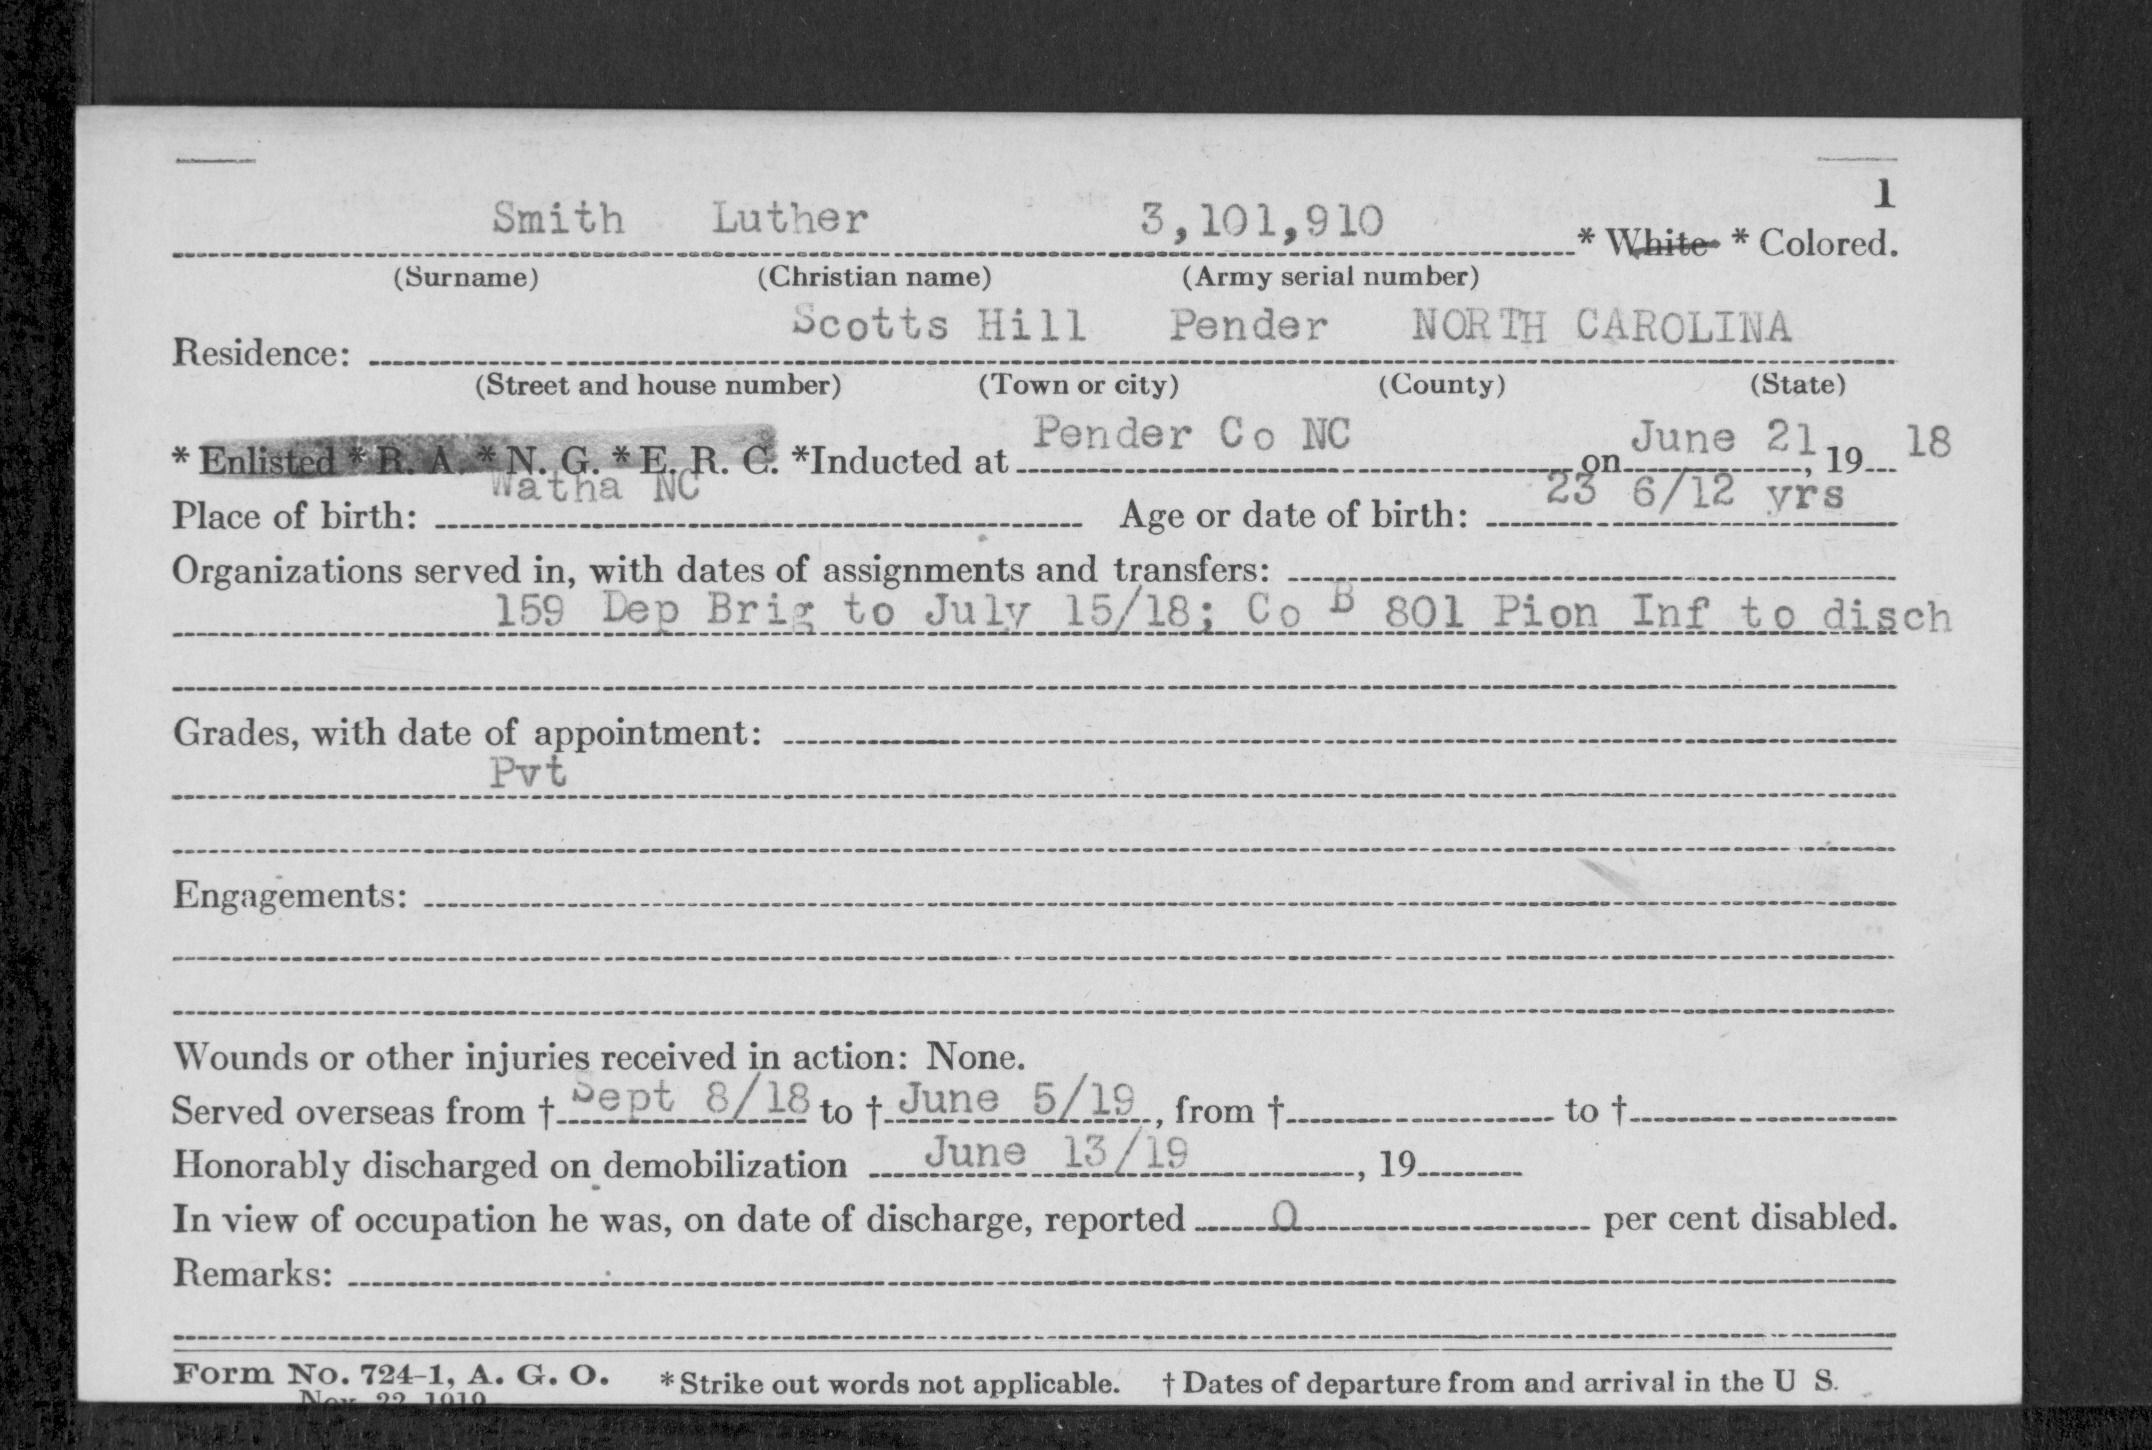 1
Smith Luther 3,101,910 * White * Colored.
(Surname) (Christian name) (Army serial number)
Residence: Scotts Hill Pender NORTH CAROLINA
(Street and house number) (Town or city) (County) (State)
* Enlisted * R. A. * N. G. * E. R. C. *Inducted at Pender Co NC on June 21, 19 18
Place of birth: Watha NC Age or date of birth: 23 6/12 yrs
Organizations served in, with dates of assignments and transfers:
159 Dep Brig to July 15/18; Co B 801 Pion Inf to disch
Grades, with date of appointment:
Pvt
Engagements:
Wounds or other injuries received in action: None.
Served overseas from † Sept 8/18 to † June 5/19, from † to †
Honorably discharged on demobilization June 13/19, 19
In view of occupation he was, on date of discharge, reported 0 per cent disabled.
Remarks:
Form No. 724-1, A. G. O. * Strike out words not applicable. † Dates of departure from and arrival in the U S.
Nov 22 1919